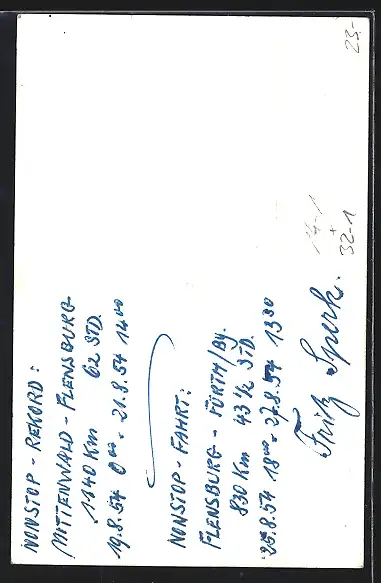 NONSTOP-REKORD:
MITTENWALD-FLENSBURG
1140 Km 62 STD.
19.8.54 0⁰⁰ - 21.8.54 14⁰⁰
NONSTOP-FAHRT:
FLENSBURG - FÜRTH/By.
830 Km 43½ STD.
25.8.54 18⁰⁰ - 27.8.54 13³⁰
Fritz Spurk.
14-1
+
32-1
23.-